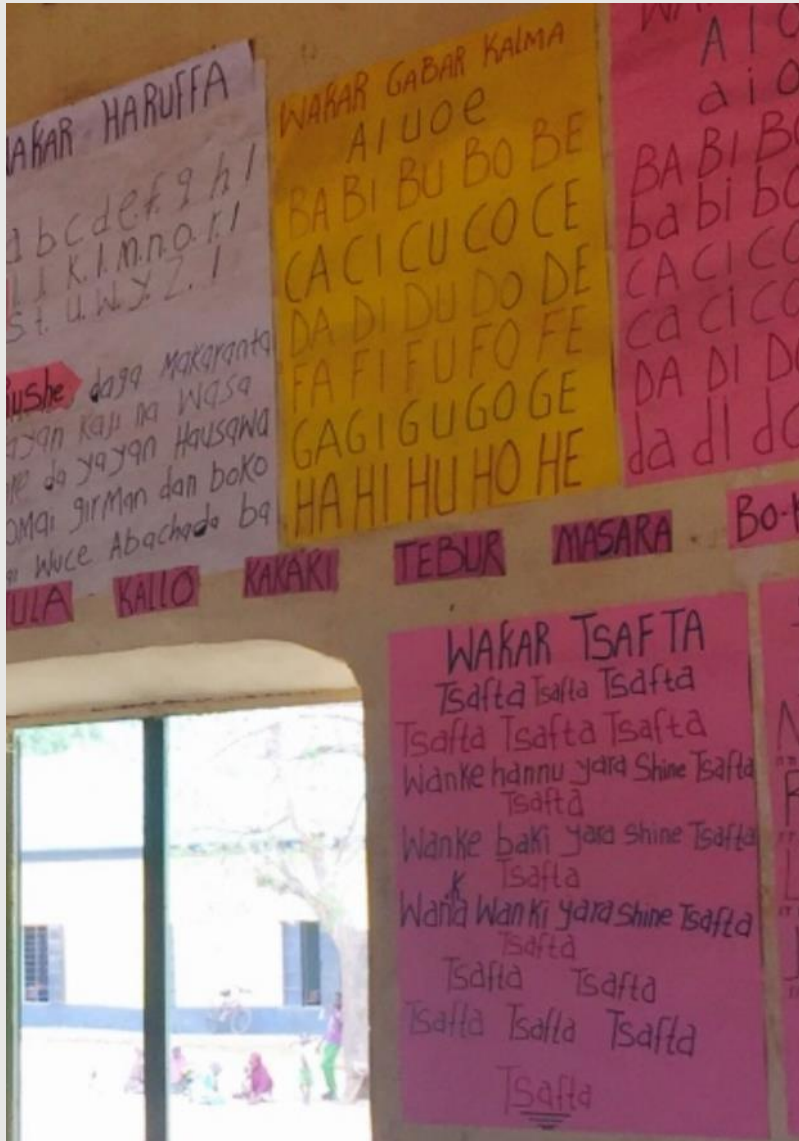 WAKAR HARUFFA
a b c d e. f. g h i
k. l. m. n. o. r. l
s t. u. w. y. z. l
Rushe daga Makaranta
yayan kaji na wasa
da yayan Hausawa
girman dan boko
Wuce Abachada ba
WAKAR GABAR KALMA
A I U O e
BA BI BU BO BE
CA CI CU CO CE
DA DI DU DO DE
FA FI FU FO FE
GA GI GU GO GE
HA HI HU HO HE
A I O
a i o
BA BI BO
ba bi bo
CA CI CO
ca ci co
DA DI DO
da di do
ULA
KALLO
KAKAKI
TEBUR
MASARA
BO-
WAKAR TSAFTA
Tsafta Tsafta Tsafta
Tsafta Tsafta Tsafta
Wanke hannu yara Shine Tsafta
Tsafta
Wanke baki yara shine Tsafta
Tsafta
Wanka Wanki yara shine Tsafta
Tsafta
Tsafta Tsafta
Tsafta Tsafta Tsafta
Tsafta